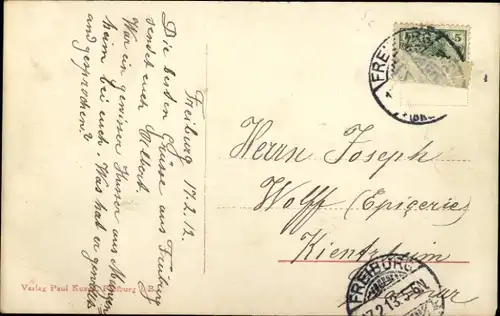 Freiburg 17.2.12.
Die besten Grüsse aus Freiburg
sendet euch Albert.
War ein gewisser Husser aus
heim bei euch. Was hat er
und gesprochen?
Herrn Joseph
Wolff (Epicerie)
Kientzheim
Verlag Paul
FREIBURG
5
FREIBURG
17.2.13. 5-6N.